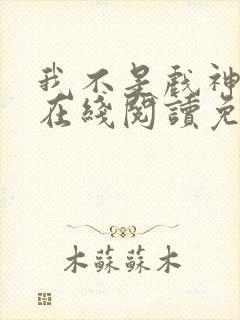 我不是戲神
在綫閱讀免
木蘇蘇木